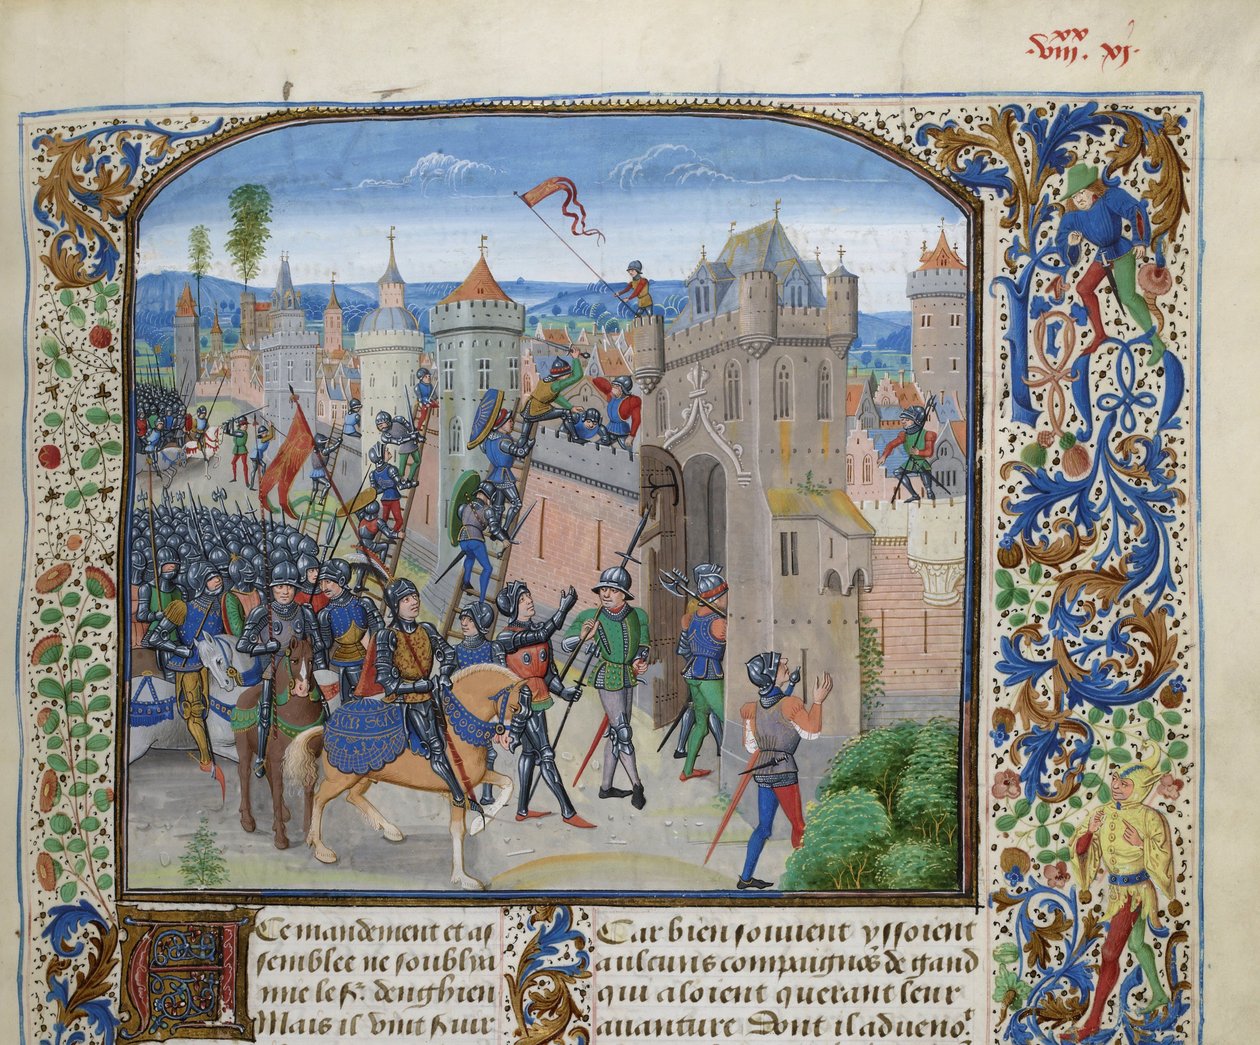 xx
.viii. xi.
Ce mandement et as
semblee ne soublya
mie le sr. denghien
Mais il vint sur
Car bien souuent yssoient
aulcuns compaignōs de gand
qui aloient querant leur
auanture Dont il aduenoi